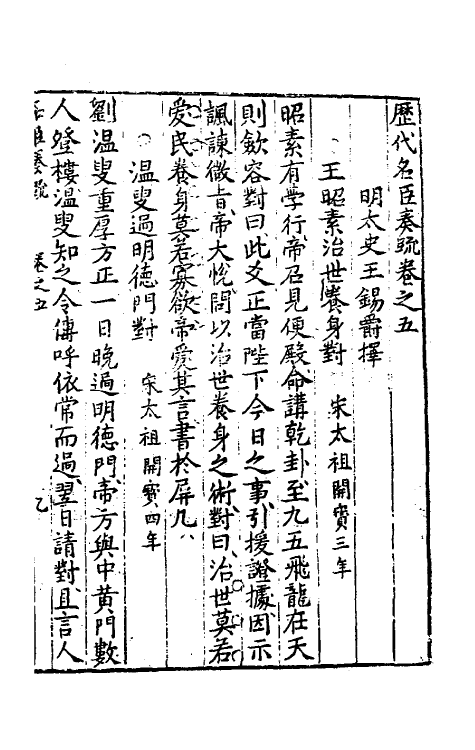 歷代名臣奏疏卷之五
明太史王錫爵擇
王昭素治世養身對 宋太祖開寶三年
昭素有學行帝召見便殿命講乾卦至九五飛龍在天
則斂容對曰此爻正當陛下今日之事引援證據因示
諷諫微旨帝大悅問以治世養身之術對曰治世莫若
愛民養身莫若寡欲帝愛其言書於屏几
溫叟過明德門對 宋太祖開寶四年
劉溫叟重厚方正一日晚過明德門帝方與中黃門數
人登樓溫叟知之令傳呼依常而過翌日請對且言人
奏疏 卷之五 乙